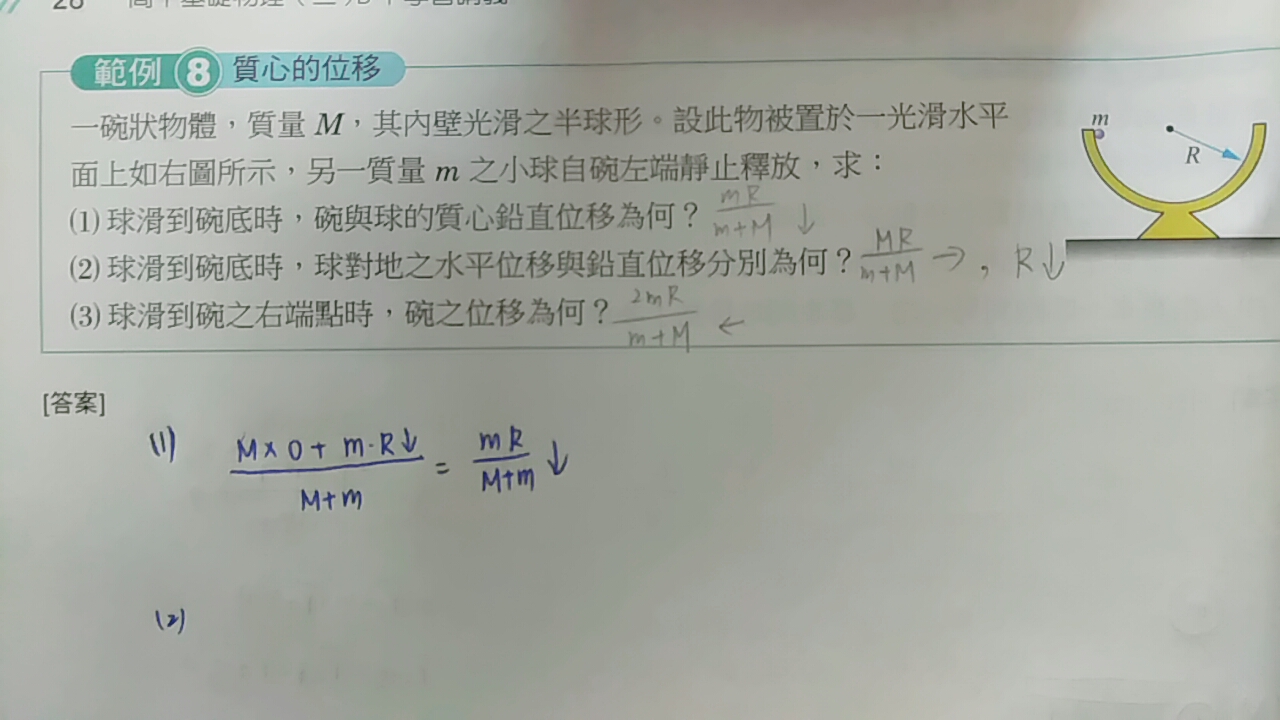 28
範例 8 質心的位移
一碗狀物體，質量 M，其內壁光滑之半球形。設此物被置於一光滑水平
面上如右圖所示，另一質量 m 之小球自碗左端靜止釋放，求：
(1) 球滑到碗底時，碗與球的質心鉛直位移為何？ mR/m+M ↓
(2) 球滑到碗底時，球對地之水平位移與鉛直位移分別為何？ MR/m+M → , R↓
(3) 球滑到碗之右端點時，碗之位移為何？ 2mR/m+M ←
m
R
[答案]
(1) M×0+m·R↓/M+m = mR/M+m ↓
(2)